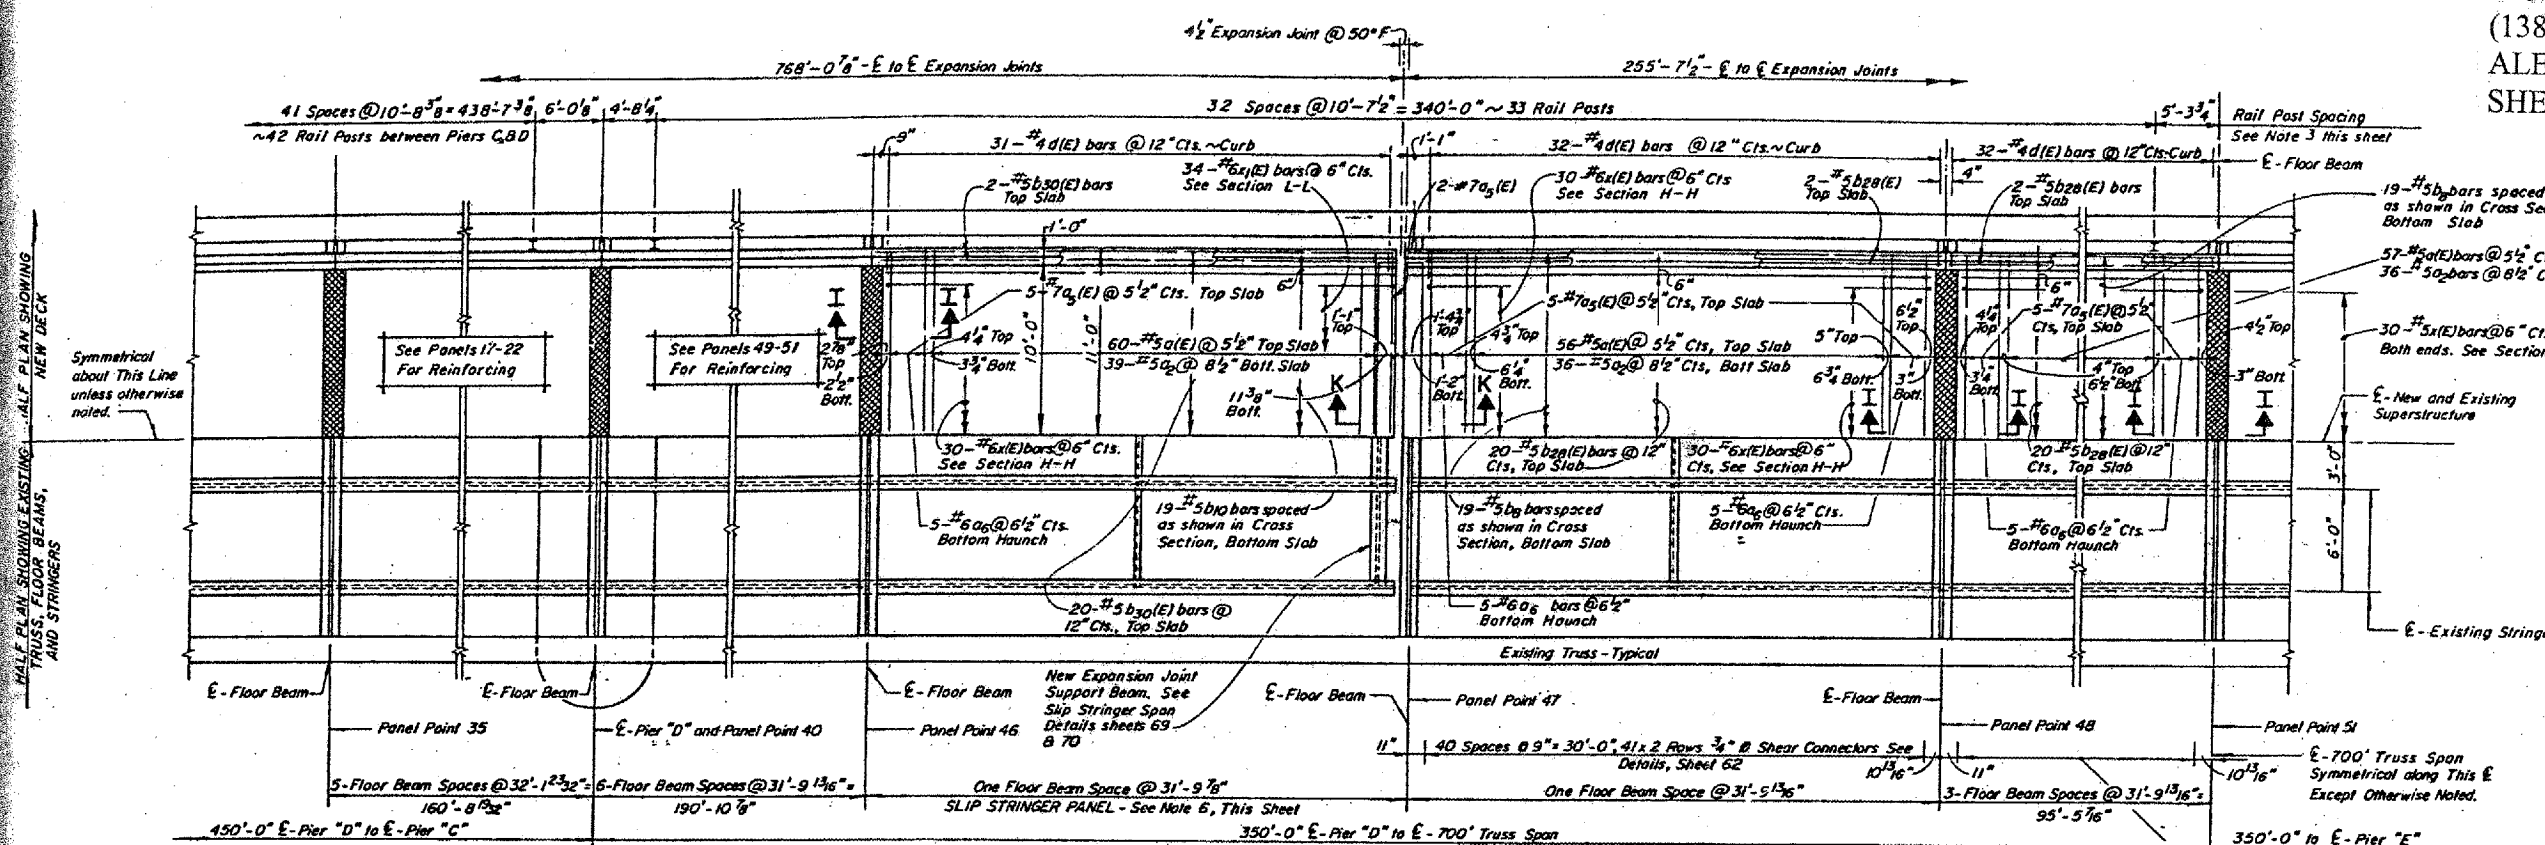 4½" Expansion Joint @ 50°F
(138
ALE
SHE
768'-0⅞"-℄ to ℄ Expansion Joints
255'-7½"-℄ to ℄ Expansion Joints
41 Spaces @ 10'-8⅜" = 438'-7⅜"
6'-0⅛"
4'-8¼"
32 Spaces @ 10'-7½" = 340'-0" ~ 33 Rail Posts
5'-3¾"
Rail Post Spacing
See Note 3 this sheet
~42 Rail Posts between Piers C&D
9"
31-#4d(E) bars @ 12"Cts.~Curb
1'-1"
32-#4d(E) bars @ 12"Cts.~Curb
32-#4d(E) bars @ 12"Cts-Curb
℄-Floor Beam
2-#5b30(E) bars
Top Slab
34-#6x1(E) bars @ 6" Cts.
See Section L-L
2-#7a5(E)
30-#6x(E) bars @ 6" Cts
See Section H-H
2-#5b28(E)
Top Slab
4"
2-#5b28(E) bars
Top Slab
19-#5b8 bars spaced
as shown in Cross Sec
Bottom Slab
57-#5a(E) bars @ 5½" C
36-#5a2 bars @ 8½" C
1'-0"
HALF PLAN SHOWING
NEW DECK
Symmetrical
about This Line
unless otherwise
noted.
See Panels 17-22
For Reinforcing
See Panels 49-51
For Reinforcing
I
I
2⅞"
Top
2½"
Bott.
5-#7a5(E) @ 5½" Cts. Top Slab
4¼" Top
3¾" Bott.
10'-0"
11'-0"
60-#5a(E) @ 5½" Top Slab
39-#5a2 @ 8½" Bott. Slab
6"
1'-1"
Top
11⅜"
Bott.
K
1'-4¾"
Top
1'-2"
Bott.
K
4¾" Top
6¼"
Bott.
5-#7a5(E) @ 5½" Cts, Top Slab
56-#5a(E) @ 5½" Cts, Top Slab
36-#5a2 @ 8½" Cts, Bott Slab
6"
5" Top
6¾" Bott.
6½"
Top
3"
Bott.
I
4¼"
Top
3¼"
Bott.
6"
5-#7a5(E) @ 5½"
Cts, Top Slab
4" Top
6½" Bott.
I
I
4½" Top
3" Bott.
I
30-#5x(E) bars @ 6" Ct
Both ends. See Section
℄-New and Existing
Superstructure
30-#6x(E) bars @ 6" Cts.
See Section H-H
20-#5b28(E) bars @ 12"
Cts, Top Slab
30-#6x(E) bars @ 6"
Cts, See Section H-H
20-#5b28(E) @ 12"
Cts, Top Slab
3'-0"
6'-0"
HALF PLAN SHOWING EXISTING
TRUSS, FLOOR BEAMS,
AND STRINGERS
5-#6a6 @ 6½" Cts.
Bottom Haunch
19-#5b10 bars spaced
as shown in Cross
Section, Bottom Slab
19-#5b8 bars spaced
as shown in Cross
Section, Bottom Slab
5-#6a6 @ 6½" Cts.
Bottom Haunch
5-#6a6 @ 6½" Cts.
Bottom Haunch
20-#5b30(E) bars @
12" Cts., Top Slab
5-#6a6 bars @ 6½"
Bottom Haunch
℄-Existing Stringe
Existing Truss-Typical
℄-Floor Beam
℄-Floor Beam
℄-Floor Beam
New Expansion Joint
Support Beam. See
Slip Stringer Span
Details sheets 69
& 70
℄-Floor Beam
Panel Point 47
℄-Floor Beam
Panel Point 35
℄-Pier "D" and Panel Point 40
Panel Point 46
Panel Point 48
Panel Point 51
11"
40 Spaces @ 9" = 30'-0", 41 x 2 Rows ¾" Ø Shear Connectors See
Details, Sheet 62
10 13/16"
11"
10 13/16"
℄-700' Truss Span
Symmetrical along This ℄
Except Otherwise Noted.
5-Floor Beam Spaces @ 32'-1 23/32" =
160'-8 19/32"
6-Floor Beam Spaces @ 31'-9 13/16" =
190'-10⅞"
One Floor Beam Space @ 31'-9⅞"
SLIP STRINGER PANEL - See Note 6, This Sheet
One Floor Beam Space @ 31'-9 13/16"
3-Floor Beam Spaces @ 31'-9 13/16" =
95'-5 7/16"
450'-0" ℄-Pier "D" to ℄-Pier "C"
350'-0" ℄-Pier "D" to ℄-700' Truss Span
350'-0" to ℄-Pier "E"